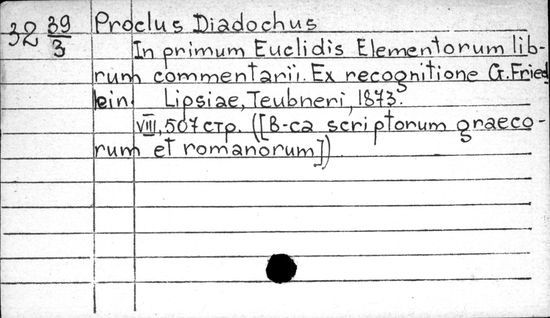 32 39/3 Proclus Diadochus
In primum Euclidis Elementorum lib-
rum commentarii. Ex recognitione G. Fried
lein Lipsiae, Teubneri, 1873.
VIII, 507 стр. ([B-ca scriptorum graeco-
rum et romanorum])